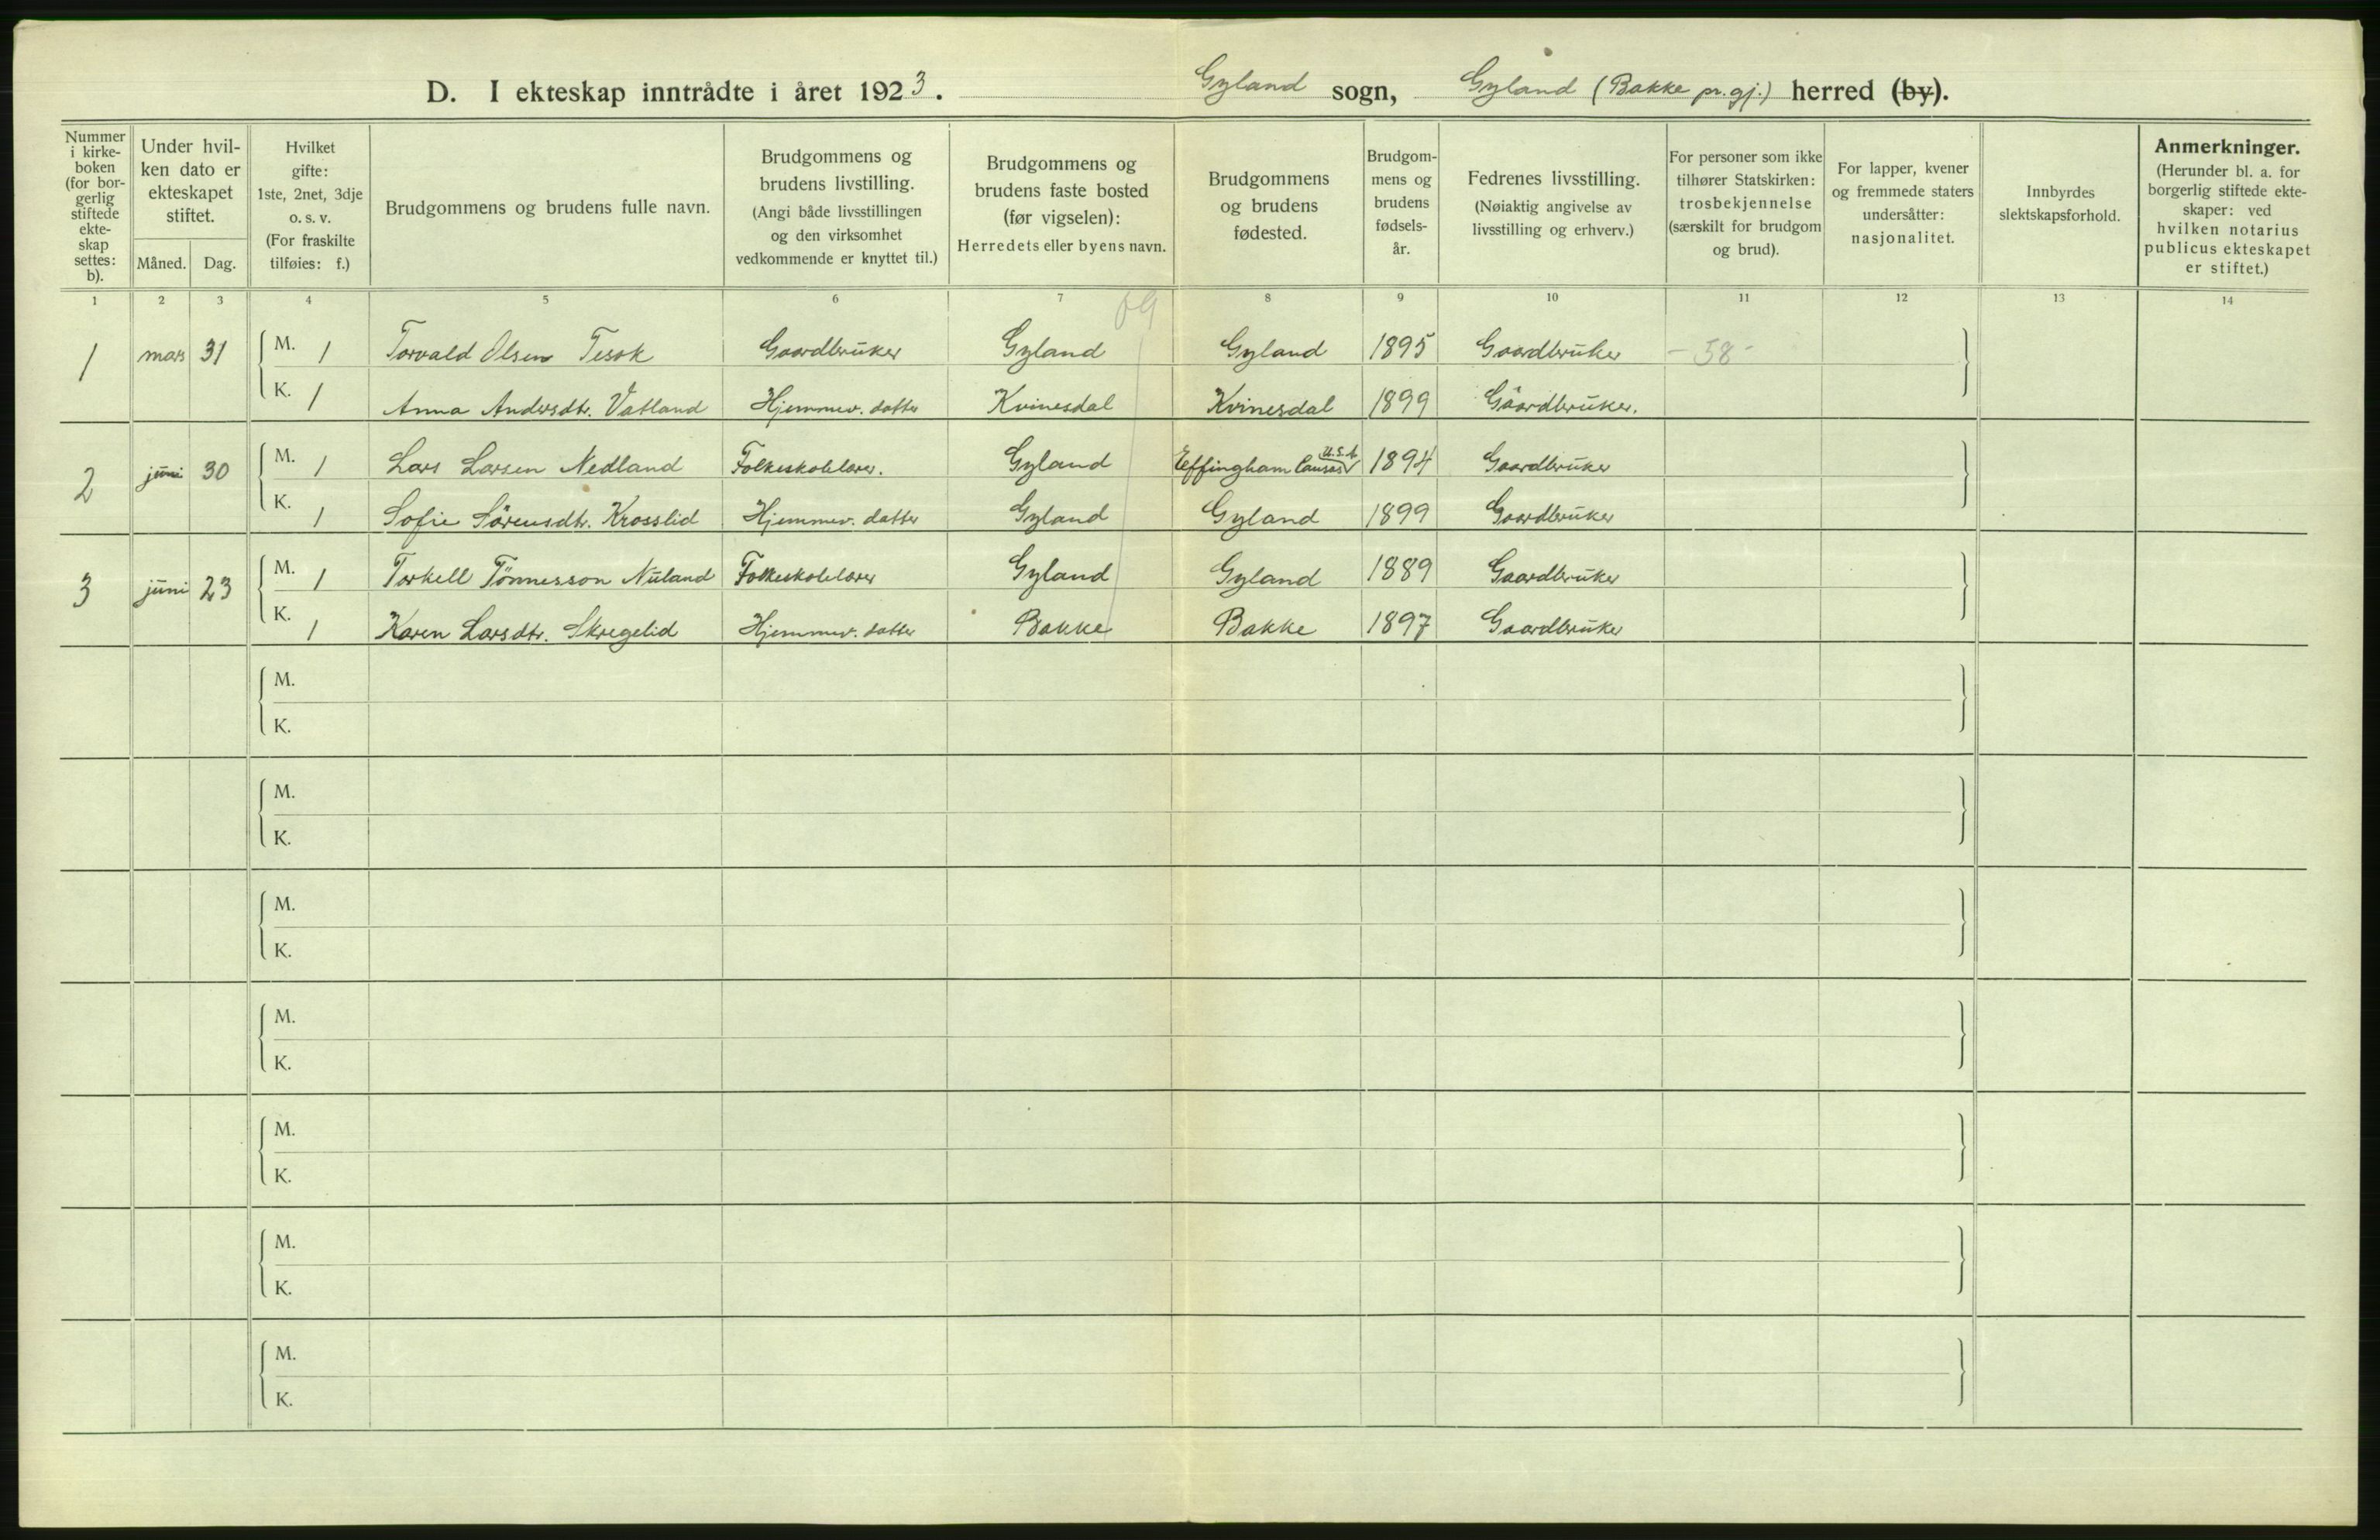 D. I ekteskap inntrådte i året 1923. Gyland sogn, Gyland (Bakke pr.gj.) herred (by).
Nummer i kirkeboken (for borgerlig stiftede ekteskap settes: b).
Under hvilken dato er ekteskapet stiftet.
Måned. Dag.
Hvilket gifte: 1ste, 2net, 3dje o. s. v. (For fraskilte tilføies: f.)
Brudgommens og brudens fulle navn.
Brudgommens og brudens livstilling. (Angi både livsstillingen og den virksomhet vedkommende er knyttet til.)
Brudgommens og brudens faste bosted (før vigselen): Herredets eller byens navn.
Brudgommens og brudens fødested.
Brudgommens og brudens fødselsår.
Fedrenes livsstilling. (Nøiaktig angivelse av livsstilling og erhverv.)
For personer som ikke tilhører Statskirken: trosbekjennelse (særskilt for brudgom og brud).
For lapper, kvener og fremmede staters undersåtter: nasjonalitet.
Innbyrdes slektskapsforhold.
Anmerkninger. (Herunder bl. a. for borgerlig stiftede ekteskaper: ved hvilken notarius publicus ekteskapet er stiftet.)
1 2 3 4 5 6 7 8 9 10 11 12 13 14
69
1 mars 31 M. 1 Torvald Olsen Tesok Gaardbruker Gyland Gyland 1895 Gaardbruker - 58 -
K. 1 Anna Andersdtr. Vatland Hjemmev. datter Kvinesdal Kvinesdal 1899 Gaardbruker.
2 juni 30 M. 1 Lars Larsen Nedland Folkeskolelærer. Gyland Effingham U.S.A. 1894 Gaardbruker
K. 1 Sofie Sörensdtr. Krosslid Hjemmev. datter Gyland Gyland 1899 Gaardbruker
3 juni 23 M. 1 Torkell Tönnesson Nuland Folkeskolelærer Gyland Gyland 1889 Gaardbruker
K. 1 Karen Larsdtr. Skregelid Hjemmev. datter Bakke Bakke 1897 Gaardbruker
M.
K.
M.
K.
M.
K.
M.
K.
M.
K.
M.
K.
M.
K.